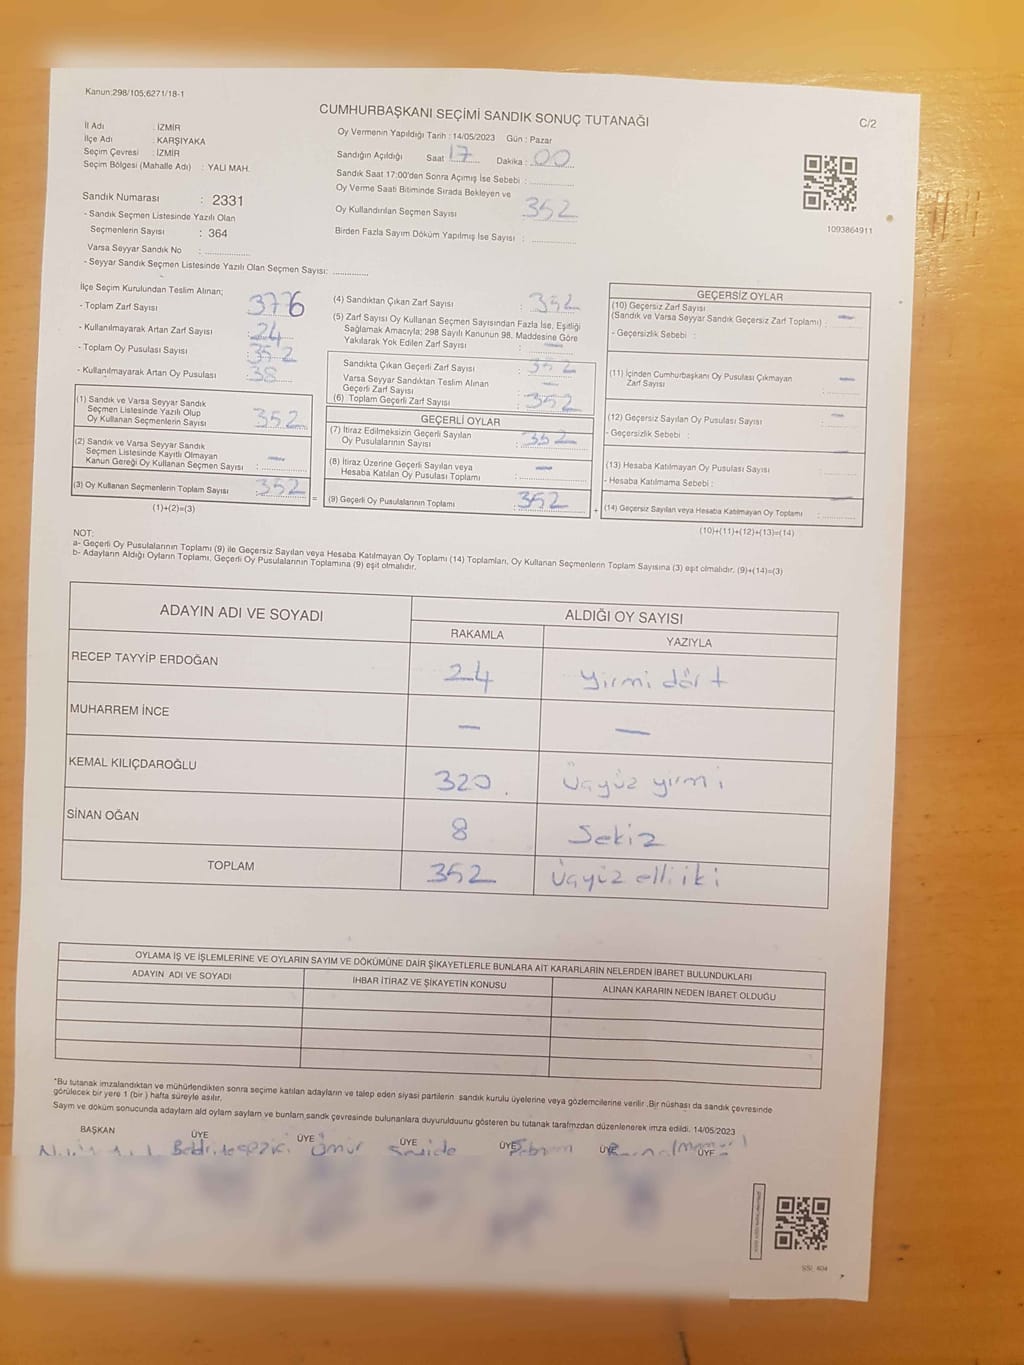 Kanun:298/105;6271/18-1
CUMHURBAŞKANI SEÇİMİ SANDIK SONUÇ TUTANAĞI
C/2
İl Adı : İZMİR
İlçe Adı : KARŞIYAKA
Seçim Çevresi : İZMİR
Seçim Bölgesi (Mahalle Adı) : YALI MAH.
Oy Vermenin Yapıldığı Tarih : 14/05/2023 Gün : Pazar
Sandığın Açıldığı Saat 17 Dakika : 00
Sandık Saat 17:00'den Sonra Açımış İse Sebebi :
Oy Verme Saati Bitiminde Sırada Bekleyen ve
Oy Kullandırılan Seçmen Sayısı 352
Birden Fazla Sayım Döküm Yapılmış İse Sayısı :
1093864911
Sandık Numarası : 2331
- Sandık Seçmen Listesinde Yazılı Olan
Seçmenlerin Sayısı : 364
Varsa Seyyar Sandık No :
- Seyyar Sandık Seçmen Listesinde Yazılı Olan Seçmen Sayısı:
İlçe Seçim Kurulundan Teslim Alınan;
- Toplam Zarf Sayısı
- Kullanılmayarak Artan Zarf Sayısı : 24
- Toplam Oy Pusulası Sayısı
- Kullanılmayarak Artan Oy Pusulası : 38
(1) Sandık ve Varsa Seyyar Sandık
Seçmen Listesinde Yazılı Olup
Oy Kullanan Seçmenlerin Sayısı 352
(2) Sandık ve Varsa Seyyar Sandık
Seçmen Listesinde Kayıtlı Olmayan
Kanun Gereği Oy Kullanan Seçmen Sayısı : —
(3) Oy Kullanan Seçmenlerin Toplam Sayısı : 352
(1)+(2)=(3)
(4) Sandıktan Çıkan Zarf Sayısı : 352
(5) Zarf Sayısı Oy Kullanan Seçmen Sayısından Fazla İse, Eşitliği
Sağlamak Amacıyla; 298 Sayılı Kanunun 98. Maddesine Göre
Yakılarak Yok Edilen Zarf Sayısı : —
Sandıkta Çıkan Geçerli Zarf Sayısı : 352
Varsa Seyyar Sandıktan Teslim Alınan
Geçerli Zarf Sayısı —
(6) Toplam Geçerli Zarf Sayısı : 352
GEÇERLİ OYLAR
(7) İtiraz Edilmeksizin Geçerli Sayılan
Oy Pusulalarının Sayısı : 352
(8) İtiraz Üzerine Geçerli Sayılan veya
Hesaba Katılan Oy Pusulası Toplamı : —
= (9) Geçerli Oy Pusulalarının Toplamı 352 +
GEÇERSİZ OYLAR
(10) Geçersiz Zarf Sayısı
(Sandık ve Varsa Seyyar Sandık Geçersiz Zarf Toplamı) : —
- Geçersizlik Sebebi :
(11) İçinden Cumhurbaşkanı Oy Pusulası Çıkmayan
Zarf Sayısı —
(12) Geçersiz Sayılan Oy Pusulası Sayısı —
- Geçersizlik Sebebi :
(13) Hesaba Katılmayan Oy Pusulası Sayısı —
- Hesaba Katılmama Sebebi :
(14) Geçersiz Sayılan veya Hesaba Katılmayan Oy Toplamı : —
(10)+(11)+(12)+(13)=(14)
NOT:
a- Geçerli Oy Pusulalarının Toplamı (9) ile Geçersiz Sayılan veya Hesaba Katılmayan Oy Toplamı (14) Toplamları, Oy Kullanan Seçmenlerin Toplam Sayısına (3) eşit olmalıdır. (9)+(14)=(3)
b- Adayların Aldığı Oyların Toplamı, Geçerli Oy Pusulalarının Toplamına (9) eşit olmalıdır.
ADAYIN ADI VE SOYADI ALDIĞI OY SAYISI
RAKAMLA YAZIYLA
RECEP TAYYİP ERDOĞAN 24 yirmi dört
MUHARREM İNCE — —
KEMAL KILIÇDAROĞLU 320. üçyüz yirmi
SİNAN OĞAN 8 Sekiz
TOPLAM 352 üçyüz elli iki
OYLAMA İŞ VE İŞLEMLERİNE VE OYLARIN SAYIM VE DÖKÜMÜNE DAİR ŞİKAYETLERLE BUNLARA AİT KARARLARIN NELERDEN İBARET BULUNDUKLARI
ADAYIN ADI VE SOYADI İHBAR İTİRAZ VE ŞİKAYETİN KONUSU ALINAN KARARIN NEDEN İBARET OLDUĞU
*Bu tutanak imzalandıktan ve mühürlendikten sonra seçime katılan adayların ve talep eden siyasi partilerin sandık kurulu üyelerine veya gözlemcilerine verilir .Bir nüshası da sandık çevresinde
görülecek bir yere 1 (bir ) hafta süreyle asılır.
Sayım ve döküm sonucunda adayların ald oyların sayların ve bunların sandk çevresinde bulunanlara duyurulduunu gösteren bu tutanak tarafmzdan düzenlenerek imza edildi. 14/05/2023
BAŞKAN ÜYE ÜYE ÜYE ÜYE ÜYE ÜYE
Ümür
SSİ_404